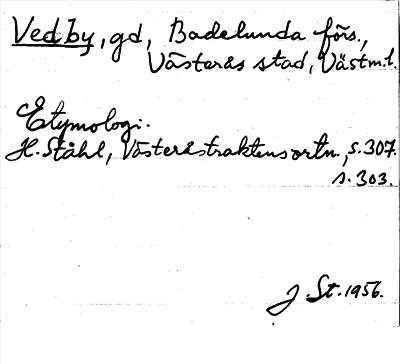 Vedby, gd, Badelunda förs.,
Västerås stad, Västm.l.
Etymologi.
H. Ståhl, Västeråstraktens ortn., s. 307.
s. 303.
J. St. 1956.